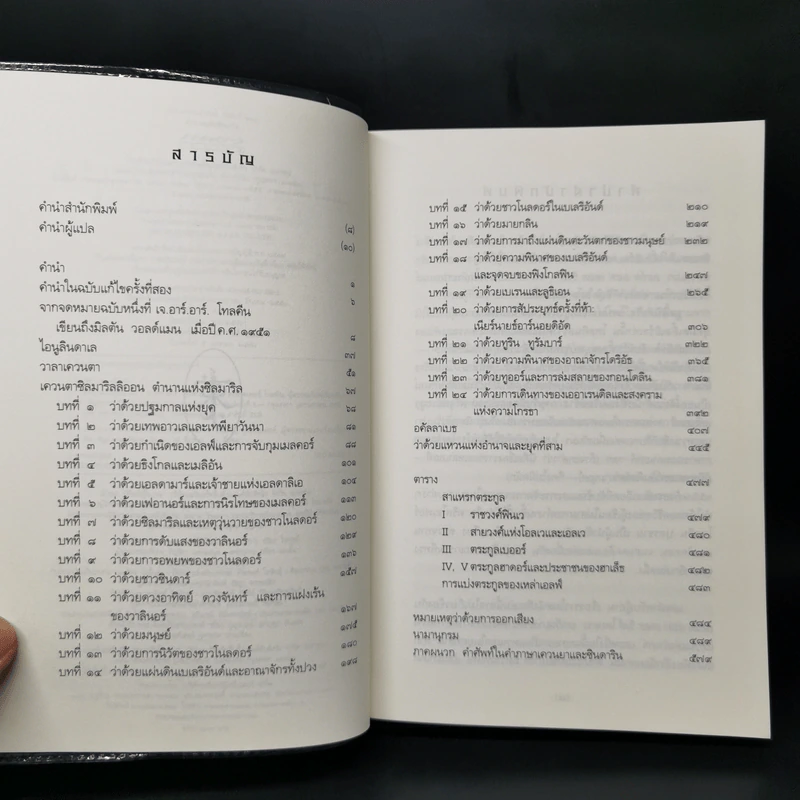 สารบัญ
คำนำสำนักพิมพ์ (๘)
คำนำผู้แปล (๑๐)
คำนำ ๑
คำนำในฉบับแก้ไขครั้งที่สอง ๖
จากจดหมายฉบับหนึ่งที่ เจ.อาร์.อาร์. โทลคีน
เขียนถึงมิลตัน วอลด์แมน เมื่อปี ค.ศ. ๑๙๕๑ ๘
ไอนูลินดาเล ๓๗
วาลาเควนตา ๕๑
เควนตาซิลมาริลลิออน ตำนานแห่งซิลมาริล ๖๗
บทที่ ๑ ว่าด้วยปฐมกาลแห่งยุค ๖๘
บทที่ ๒ ว่าด้วยเทพอาวเลและเทพียาวันนา ๘๑
บทที่ ๓ ว่าด้วยกำเนิดของเอลฟ์และการจับกุมเมลคอร์ ๘๘
บทที่ ๔ ว่าด้วยธิงโกลและเมลิอัน ๑๐๑
บทที่ ๕ ว่าด้วยเอลดามาร์และเจ้าชายแห่งเอลดาลิเอ ๑๐๔
บทที่ ๖ ว่าด้วยเฟอานอร์และการนิรโทษของเมลคอร์ ๑๑๓
บทที่ ๗ ว่าด้วยซิลมาริลและเหตุวุ่นวายของชาวโนลดอร์ ๑๒๐
บทที่ ๘ ว่าด้วยการดับแสงของวาลินอร์ ๑๒๙
บทที่ ๙ ว่าด้วยการอพยพของชาวโนลดอร์ ๑๓๖
บทที่ ๑๐ ว่าด้วยชาวซินดาร์ ๑๕๗
บทที่ ๑๑ ว่าด้วยดวงอาทิตย์ ดวงจันทร์ และการแฝงเร้น
ของวาลินอร์ ๑๖๗
บทที่ ๑๒ ว่าด้วยมนุษย์ ๑๗๕
บทที่ ๑๓ ว่าด้วยการนิวัตของชาวโนลดอร์ ๑๘๐
บทที่ ๑๔ ว่าด้วยแผ่นดินเบเลริอันด์และอาณาจักรทั้งปวง ๑๙๘
บทที่ ๑๕ ว่าด้วยชาวโนลดอร์ในเบเลริอันด์ ๒๑๐
บทที่ ๑๖ ว่าด้วยมายกลิน ๒๑๙
บทที่ ๑๗ ว่าด้วยการมาถึงแผ่นดินตะวันตกของชาวมนุษย์ ๒๓๒
บทที่ ๑๘ ว่าด้วยความพินาศของเบเลริอันด์
และจุดจบของฟิงโกลฟิน ๒๔๗
บทที่ ๑๙ ว่าด้วยเบเรนและลูธิเอน ๒๖๕
บทที่ ๒๐ ว่าด้วยการสัประยุทธ์ครั้งที่ห้า:
เนียร์นายธ์อาร์นอยดิอัด ๓๐๖
บทที่ ๒๑ ว่าด้วยทูริน ทูรัมบาร์ ๓๒๒
บทที่ ๒๒ ว่าด้วยความพินาศของอาณาจักรโดริอัธ ๓๖๕
บทที่ ๒๓ ว่าด้วยทูออร์และการล่มสลายของกอนโดลิน ๓๘๑
บทที่ ๒๔ ว่าด้วยการเดินทางของเออาเรนดิลและสงคราม
แห่งความโกรธา ๓๙๒
อคัลลาเบธ ๔๐๗
ว่าด้วยแหวนแห่งอำนาจและยุคที่สาม ๔๔๕
ตาราง ๔๗๗
สาแหรกตระกูล
I ราชวงศ์ฟินเว ๔๗๙
II สายวงศ์แห่งโอลเวและเอลเว ๔๘๐
III ตระกูลเบออร์ ๔๘๑
IV, V ตระกูลฮาดอร์และประชาชนของฮาเล็ธ ๔๘๒
การแบ่งตระกูลของเหล่าเอลฟ์ ๔๘๓
หมายเหตุว่าด้วยการออกเสียง ๔๘๔
นามานุกรม ๔๘๙
ภาคผนวก คำศัพท์ในคำภาษาเควนยาและซินดาริน ๕๗๙